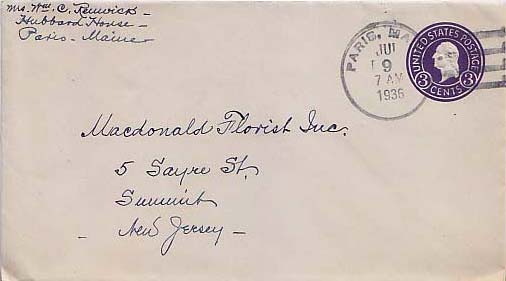 Mrs. Wm. C. Renwick -
Hubbard House -
Paris - Maine
PARIS, MA
JUL
9
7 AM
1936
UNITED STATES POSTAGE
3 CENTS 3
Macdonald Florist Inc.
5 Sayre St.
Summit
- New Jersey -